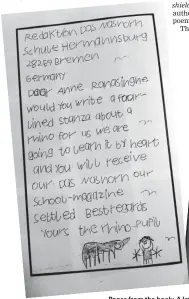 shield
autho
poem
Th
Redaktion Das Nashorn
Schule Hermannsburg
28259 Bremen
Germany
Dear Anne Ranasinghe
would you write a four-
lined stanza about a
rhino for us we are
going to learn it by heart
and you will receive
our Das Nashorn our
school-magazine
settled Bestregards
Yours the rhino-pupil
Pages from the book: A lo